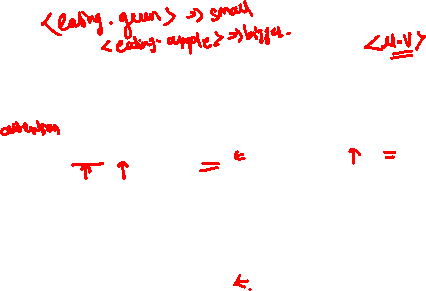 <eating. green> => small
<eating. apple> => bigger.
<u.v>
attention